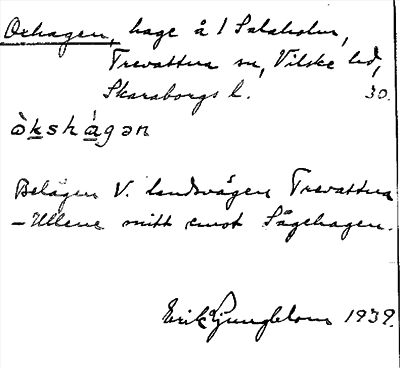 Oxhagen, hage å 1 Salaholm,
Trevattna sn, Vilske hd,
Skaraborgs l. 30.
òkshàgən
Belägen V. landsvägen Trevattna
– Ullene mitt emot Sågehagen.
Erik Ljungblom 1939.